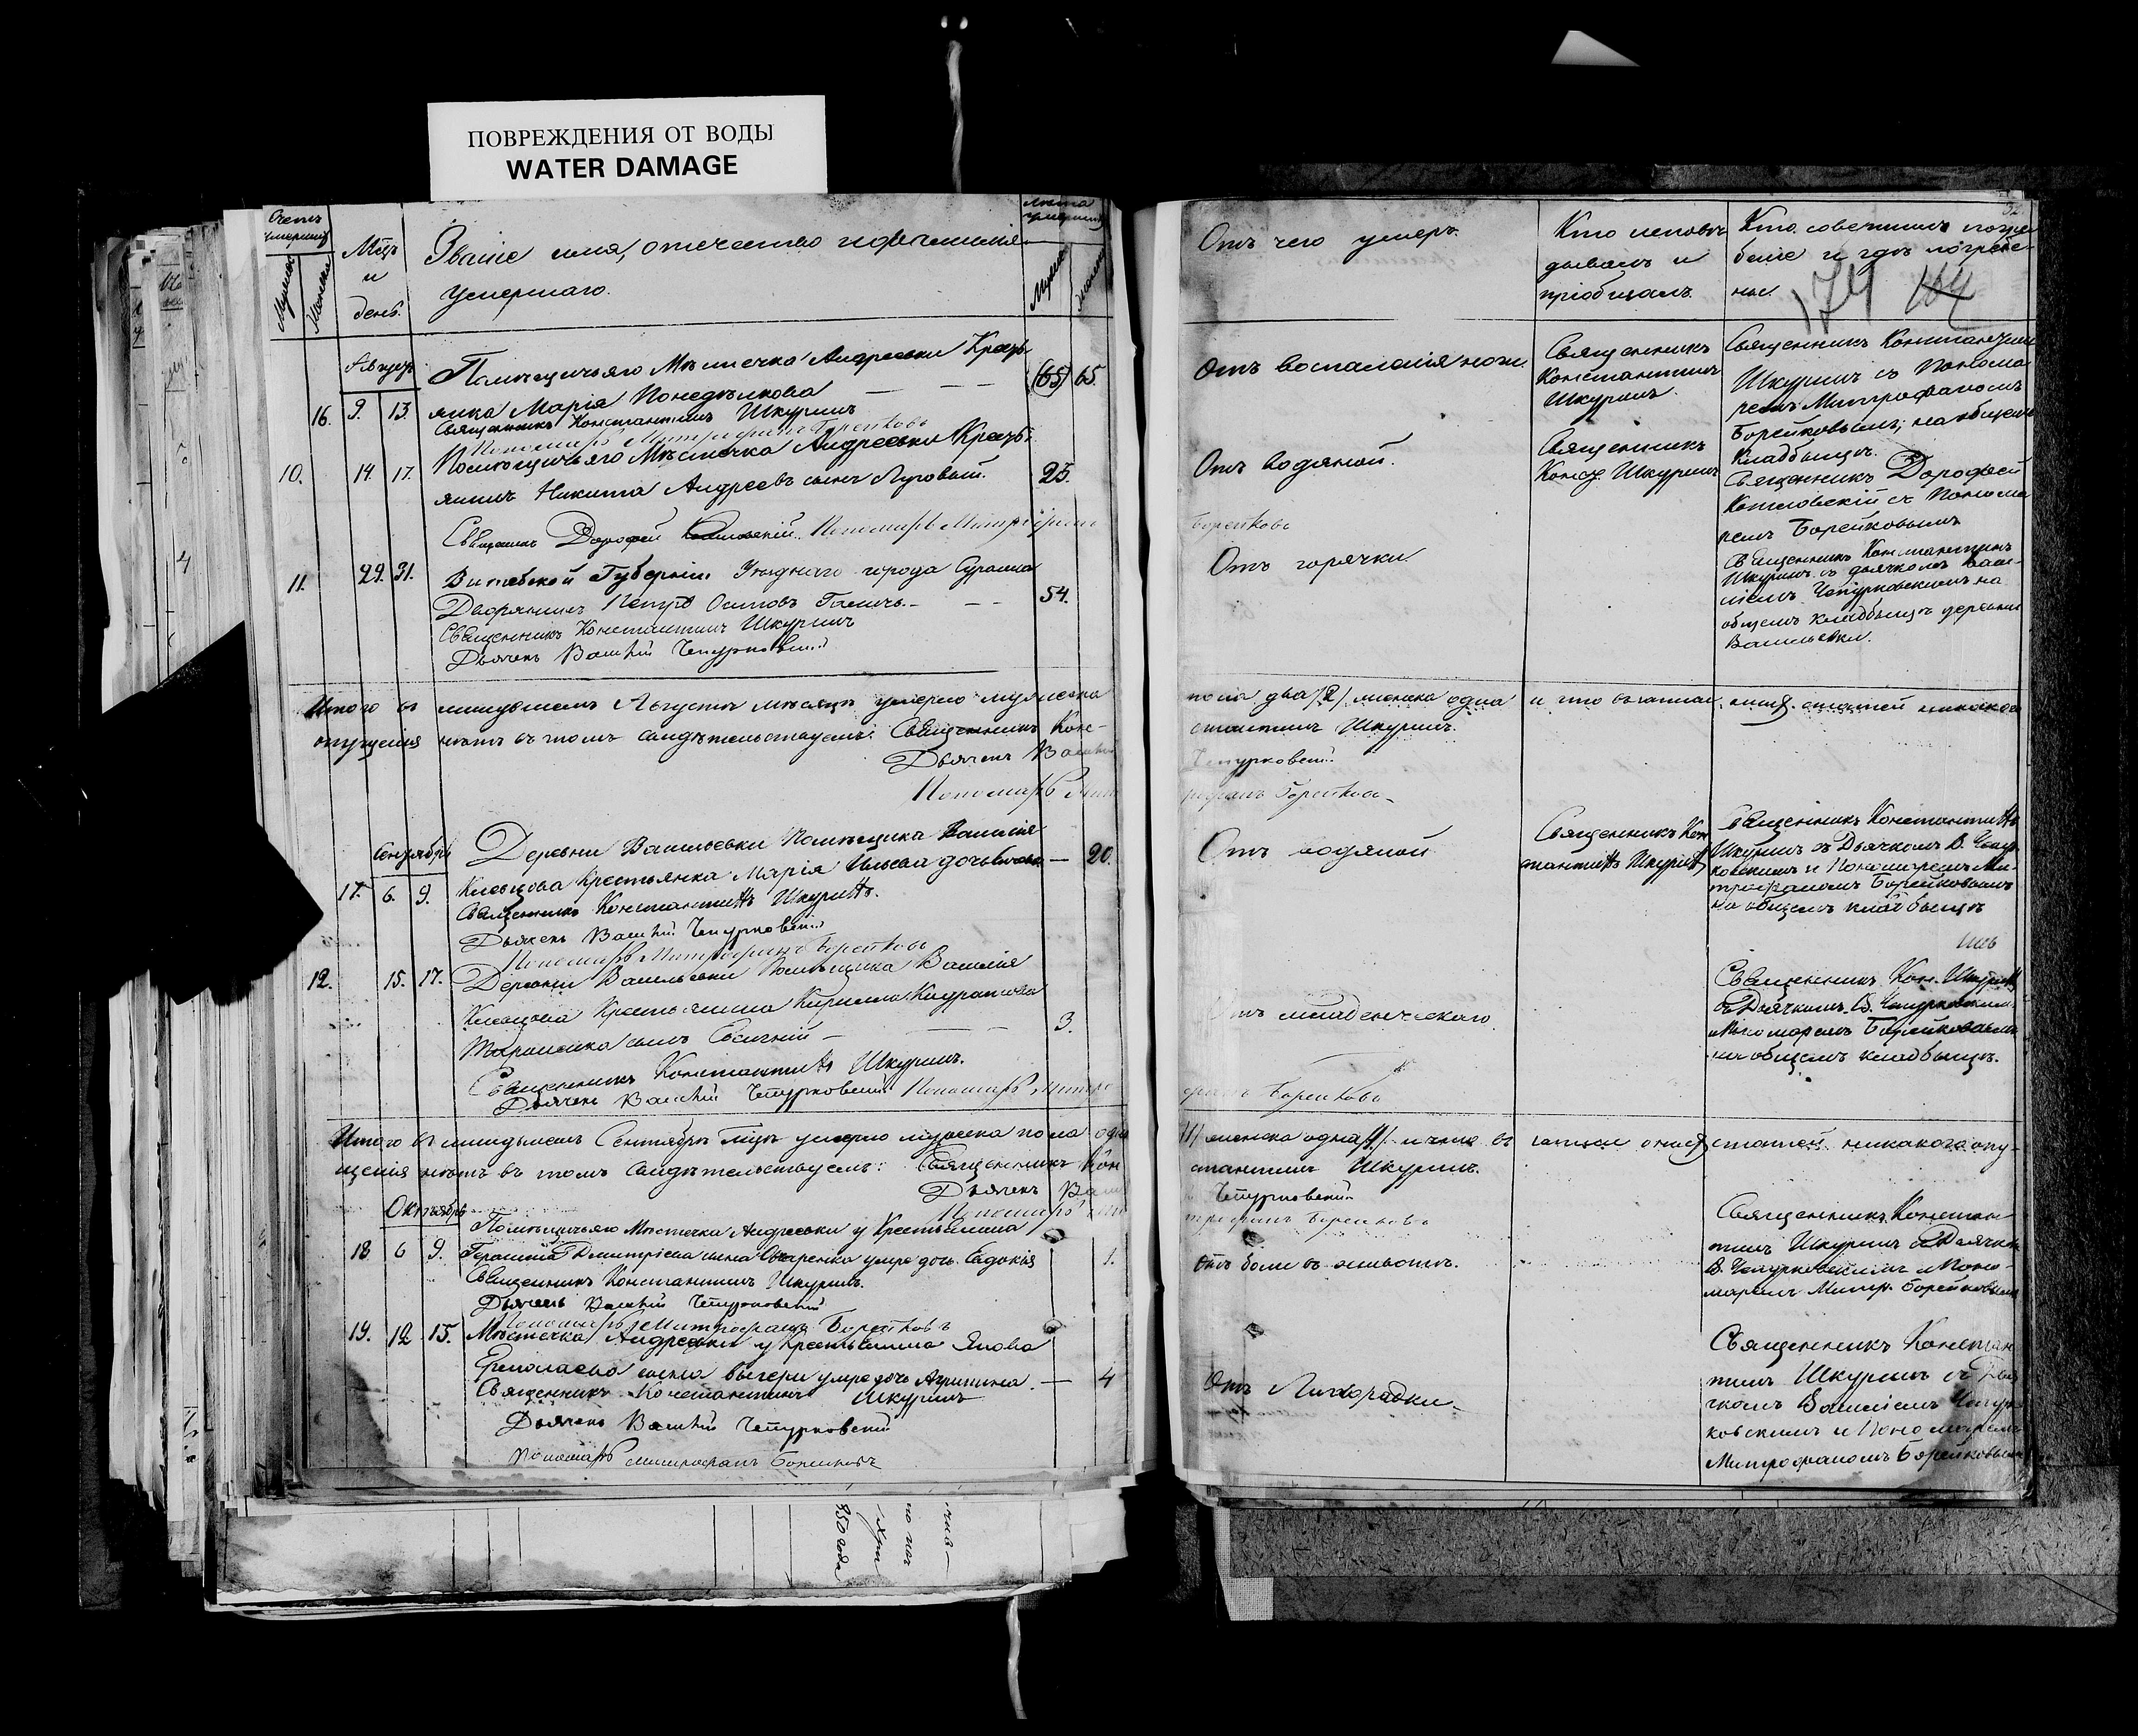 ПОВРЕЖДЕНИЯ ОТ ВОДЫ
WATER DAMAGE
Счетъ
умершихъ
Мужеска
Женска
Мѣсяцъ
и
день.
Званіе имя, отечество и фамилія
умершаго.
лѣта
умершихъ
Муже
женс
Августъ
16. 9. 13
Помѣщичьяго Мѣстечка Андреевки Кресть
янка Марія Понедѣлкова — — —
(65) 65.
Священникъ Константинъ Шкуринъ
Пономарь Митрофанъ Борейковъ
10. 14. 17.
Помѣщичьяго Мѣстечка Андреевки Кресть
янинъ Никита Андреевъ сынъ Луговый.
25.
Священникъ Дорофей Котловскій. Пономарь Митрофанъ
11. 29. 31.
Витебской Губерніи Уѣзднаго города Суража
Дворянинъ Петръ Осиповъ — —
54.
Священникъ Константинъ Шкуринъ
Дьячекъ Василій Чепурковскій
Итого въ минувшемъ Августѣ мѣсяцѣ умерло мужеска
опущенія нѣтъ въ томъ свидѣтельствуемъ: Священникъ Конс-
Дьячекъ Василій
Пономарь Мит
Сентябрь
17. 6. 9.
Деревни Васильевки Помѣщика Василія
Крестьянка Марія дочь — 20.
Священникъ Константинъ Шкуринъ.
Дьячекъ Василій Чепурковскій
Пономарь Митрофанъ Борейковъ
12. 15. 17.
Деревни Васильевки Помѣщика Василія
Крестьянина Кирилла
сынъ Евгеній — — —
3.
Священникъ Константинъ Шкуринъ.
Дьячекъ Василій Чепурковскій Пономарь Митро
Итого въ минувшемъ Сентябрѣ мцѣ умерло мужеска пола одинъ
щенія нѣтъ въ томъ свидѣтельствуемъ: Священникъ Кон
Дьячекъ Васил
Пономарь Ми
Октябрь
18 6 9.
Помѣщичьяго Мѣстечка Андреевки у Крестьянина
Дмитріева сына умре дочь Евдокія
1.
Священникъ Константинъ Шкуринъ.
Дьячекъ Василій Чепурковскій
Пономарь Митрофанъ Борейковъ
19. 12 15.
Мѣстечка Андреевки у Крестьянина Якова
Ермолаева сына умре дочь Агрипина. — 4
Священникъ Константинъ Шкуринъ
Дьячекъ Василій Чепурковскій
Пономарь Митрофанъ Борейковъ
Отъ чего умеръ.
Кто исповѣ
дывалъ и
пріобщалъ.
Кто совершилъ погре
беніе и гдѣ погребе-
ны.
174 164
Отъ воспаленія ноги.
Священникъ
Константинъ
Шкуринъ.
Священникъ Константинъ
Шкуринъ съ Понома
ремъ Митрофаномъ
Борейковымъ, на общемъ
Кладбищѣ.
Отъ водяной.
Священникъ
Конст. Шкуринъ
Священникъ Дорофей
Котловскій съ Понома
ремъ Борейковымъ
Борейковъ
Отъ горячки.
Священникъ Константинъ
Шкуринъ съ дьячкомъ Васи-
ліемъ Чепурковскимъ на
общемъ кладбищѣ деревни
Васильевки.
пола два /2/ женска одна и что въ записи статей никакого
стантинъ Шкуринъ.
Чепурковскій
рофанъ Борейковъ
Отъ водяной
Священникъ Кон
стантинъ Шкуринъ
Священникъ Константинъ
Шкуринъ съ Дьячкомъ В. Чепур
ковскимъ и Пономаремъ Ми-
трофаномъ Борейковымъ
на общемъ кладбищѣ
Отъ младенческаго.
Священникъ Кон. Шкуринъ
съ Дьячкомъ В. Чепурковскимъ
и Пономаремъ Борейковымъ
на общемъ кладбищѣ.
фанъ Борейковъ
/1/ женска одна /1/ и что въ записи статей никакого опу-
стантинъ Шкуринъ.
Чепурковскій
трофанъ Борейковъ
отъ боли въ животѣ.
Священникъ Констан
тинъ Шкуринъ съ Дьячкомъ
В. Чепурковскимъ и Поно-
маремъ Митр. Борейковымъ
Отъ Лихорадки
Священникъ Констан
тинъ Шкуринъ съ Дья
чкомъ Василіемъ Чепур
ковскимъ и Пономаремъ
Митрофаномъ Борейковымъ